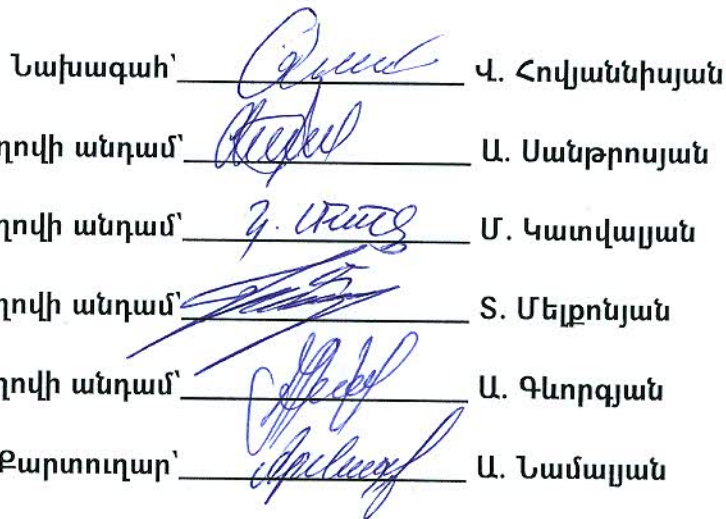 Նախագահ՝ Վ. Հովյաննիսյան
ղովի անդամ՝ Ա. Սանթրոսյան
ղովի անդամ՝ Մ. Կատվալյան
ղովի անդամ՝ Տ. Մելքոնյան
ղովի անդամ՝ Ա. Գևորգյան
Քարտուղար՝ Ա. Նամալյան